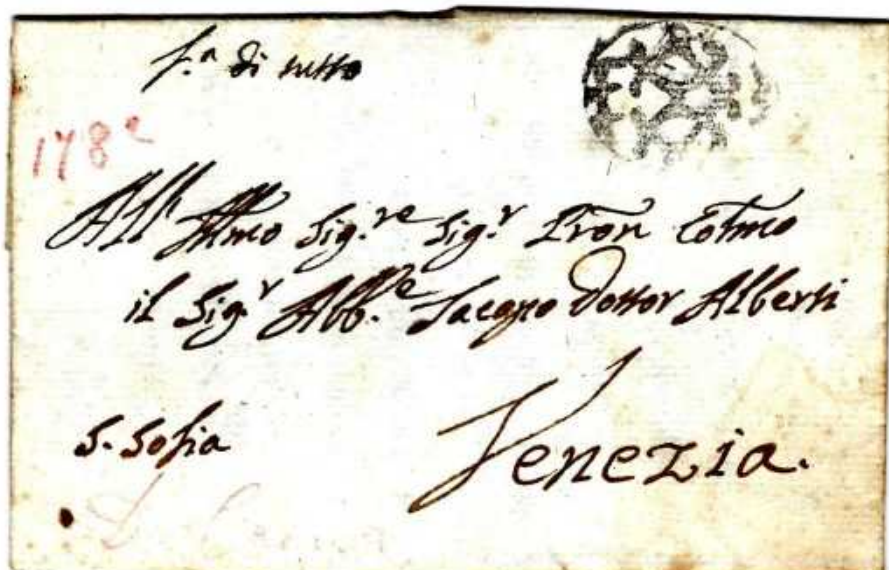 f.a di tutto
178
All' Illmo Sig.re Sig.r Pron Colmo
il Sig.r Abb.e Jacopo Dottor Alberti
S. Sofia
Venezia.